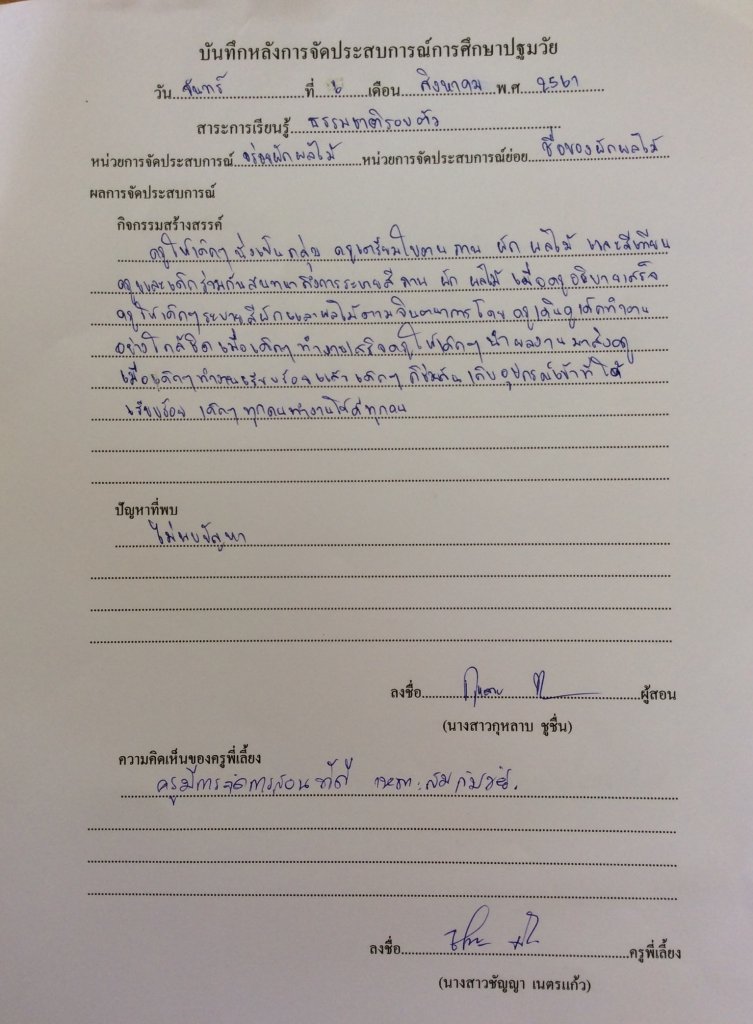 บันทึกหลังการจัดประสบการณ์การศึกษาปฐมวัย
วัน จันทร์ ที่ 6 เดือน สิงหาคม พ.ศ 2561
สาระการเรียนรู้ ธรรมชาติรอบตัว
หน่วยการจัดประสบการณ์ อร่อยผักผลไม้ หน่วยการจัดประสบการณ์ย่อย ชื่อของผักผลไม้
ผลการจัดประสบการณ์
กิจกรรมสร้างสรรค์
ครูให้เด็กๆ นั่งเป็นกลุ่ม ครูเตรียมใบงาน ภาพ ผัก ผลไม้ และสีเทียน
ครูและเด็กร่วมกันสนทนาถึงการระบายสี ภาพ ผัก ผลไม้ เมื่อครูอธิบายเสร็จ
ครูให้เด็กๆระบายสีผักและผลไม้ตามจินตนาการโดย ครูเดินดูเด็กทำงาน
อย่างใกล้ชิด เมื่อเด็กๆ ทำงานเสร็จครูให้เด็กๆ นำผลงาน มาส่งครู
เมื่อเด็กๆ ทำงานเรียบร้อยแล้ว เด็กๆ ก็ช่วยกันเก็บอุปกรณ์เข้าที่ให้
เรียบร้อย เด็กๆ ทุกคนทำงานได้ดีทุกคน
ปัญหาที่พบ
ไม่พบปัญหา
ลงชื่อ กุหลาบ ผู้สอน
(นางสาวกุหลาบ ชูชื่น)
ความคิดเห็นของครูพี่เลี้ยง
ครูมีการจัดการสอนได้ดี เหมาะสมกับวัย.
ลงชื่อ ครูพี่เลี้ยง
(นางสาวชัญญา เนตรแก้ว)